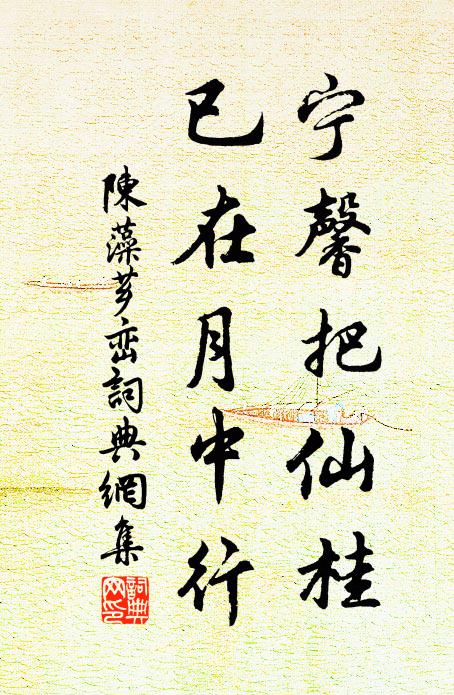 宁馨把仙桂
已在月中行
陳藻芗峦詞典網集
詞典网印